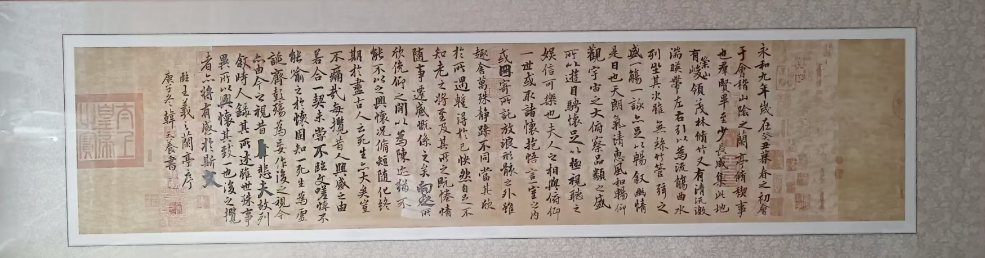 永和九年歲在癸丑暮春之初會
于會稽山陰之蘭亭脩稧事
也群賢畢至少長咸集此地
有崇山峻領茂林脩竹又有清流激
湍暎帶左右引以為流觴曲水
列坐其次雖無絲竹管弦之
盛一觴一詠亦足以暢敘幽情
是日也天朗氣清惠風和暢仰
觀宇宙之大俯察品類之盛
所以遊目騁懷足以極視聽之
娛信可樂也夫人之相與俯仰
一世或取諸懷抱悟言一室之內
或因寄所託放浪形骸之外雖
趣舍萬殊靜躁不同當其欣
於所遇蹔得於己快然自足不
知老之將至及其所之既惓情
隨事遷感慨係之矣向之所
欣俛仰之閒以為陳迹猶不
能不以之興懷況脩短隨化終
期於盡古人云死生亦大矣豈
不痛哉每攬昔人興感之由
若合一契未嘗不臨文嗟悼不
能喻之於懷固知一死生為虛
誕齊彭殤為妄作後之視今
亦由今之視昔悲夫故列
敘時人錄其所述雖世殊事
異所以興懷其致一也後之攬
者亦將有感於斯文
臨王羲之蘭亭序
庚子冬韓天養書